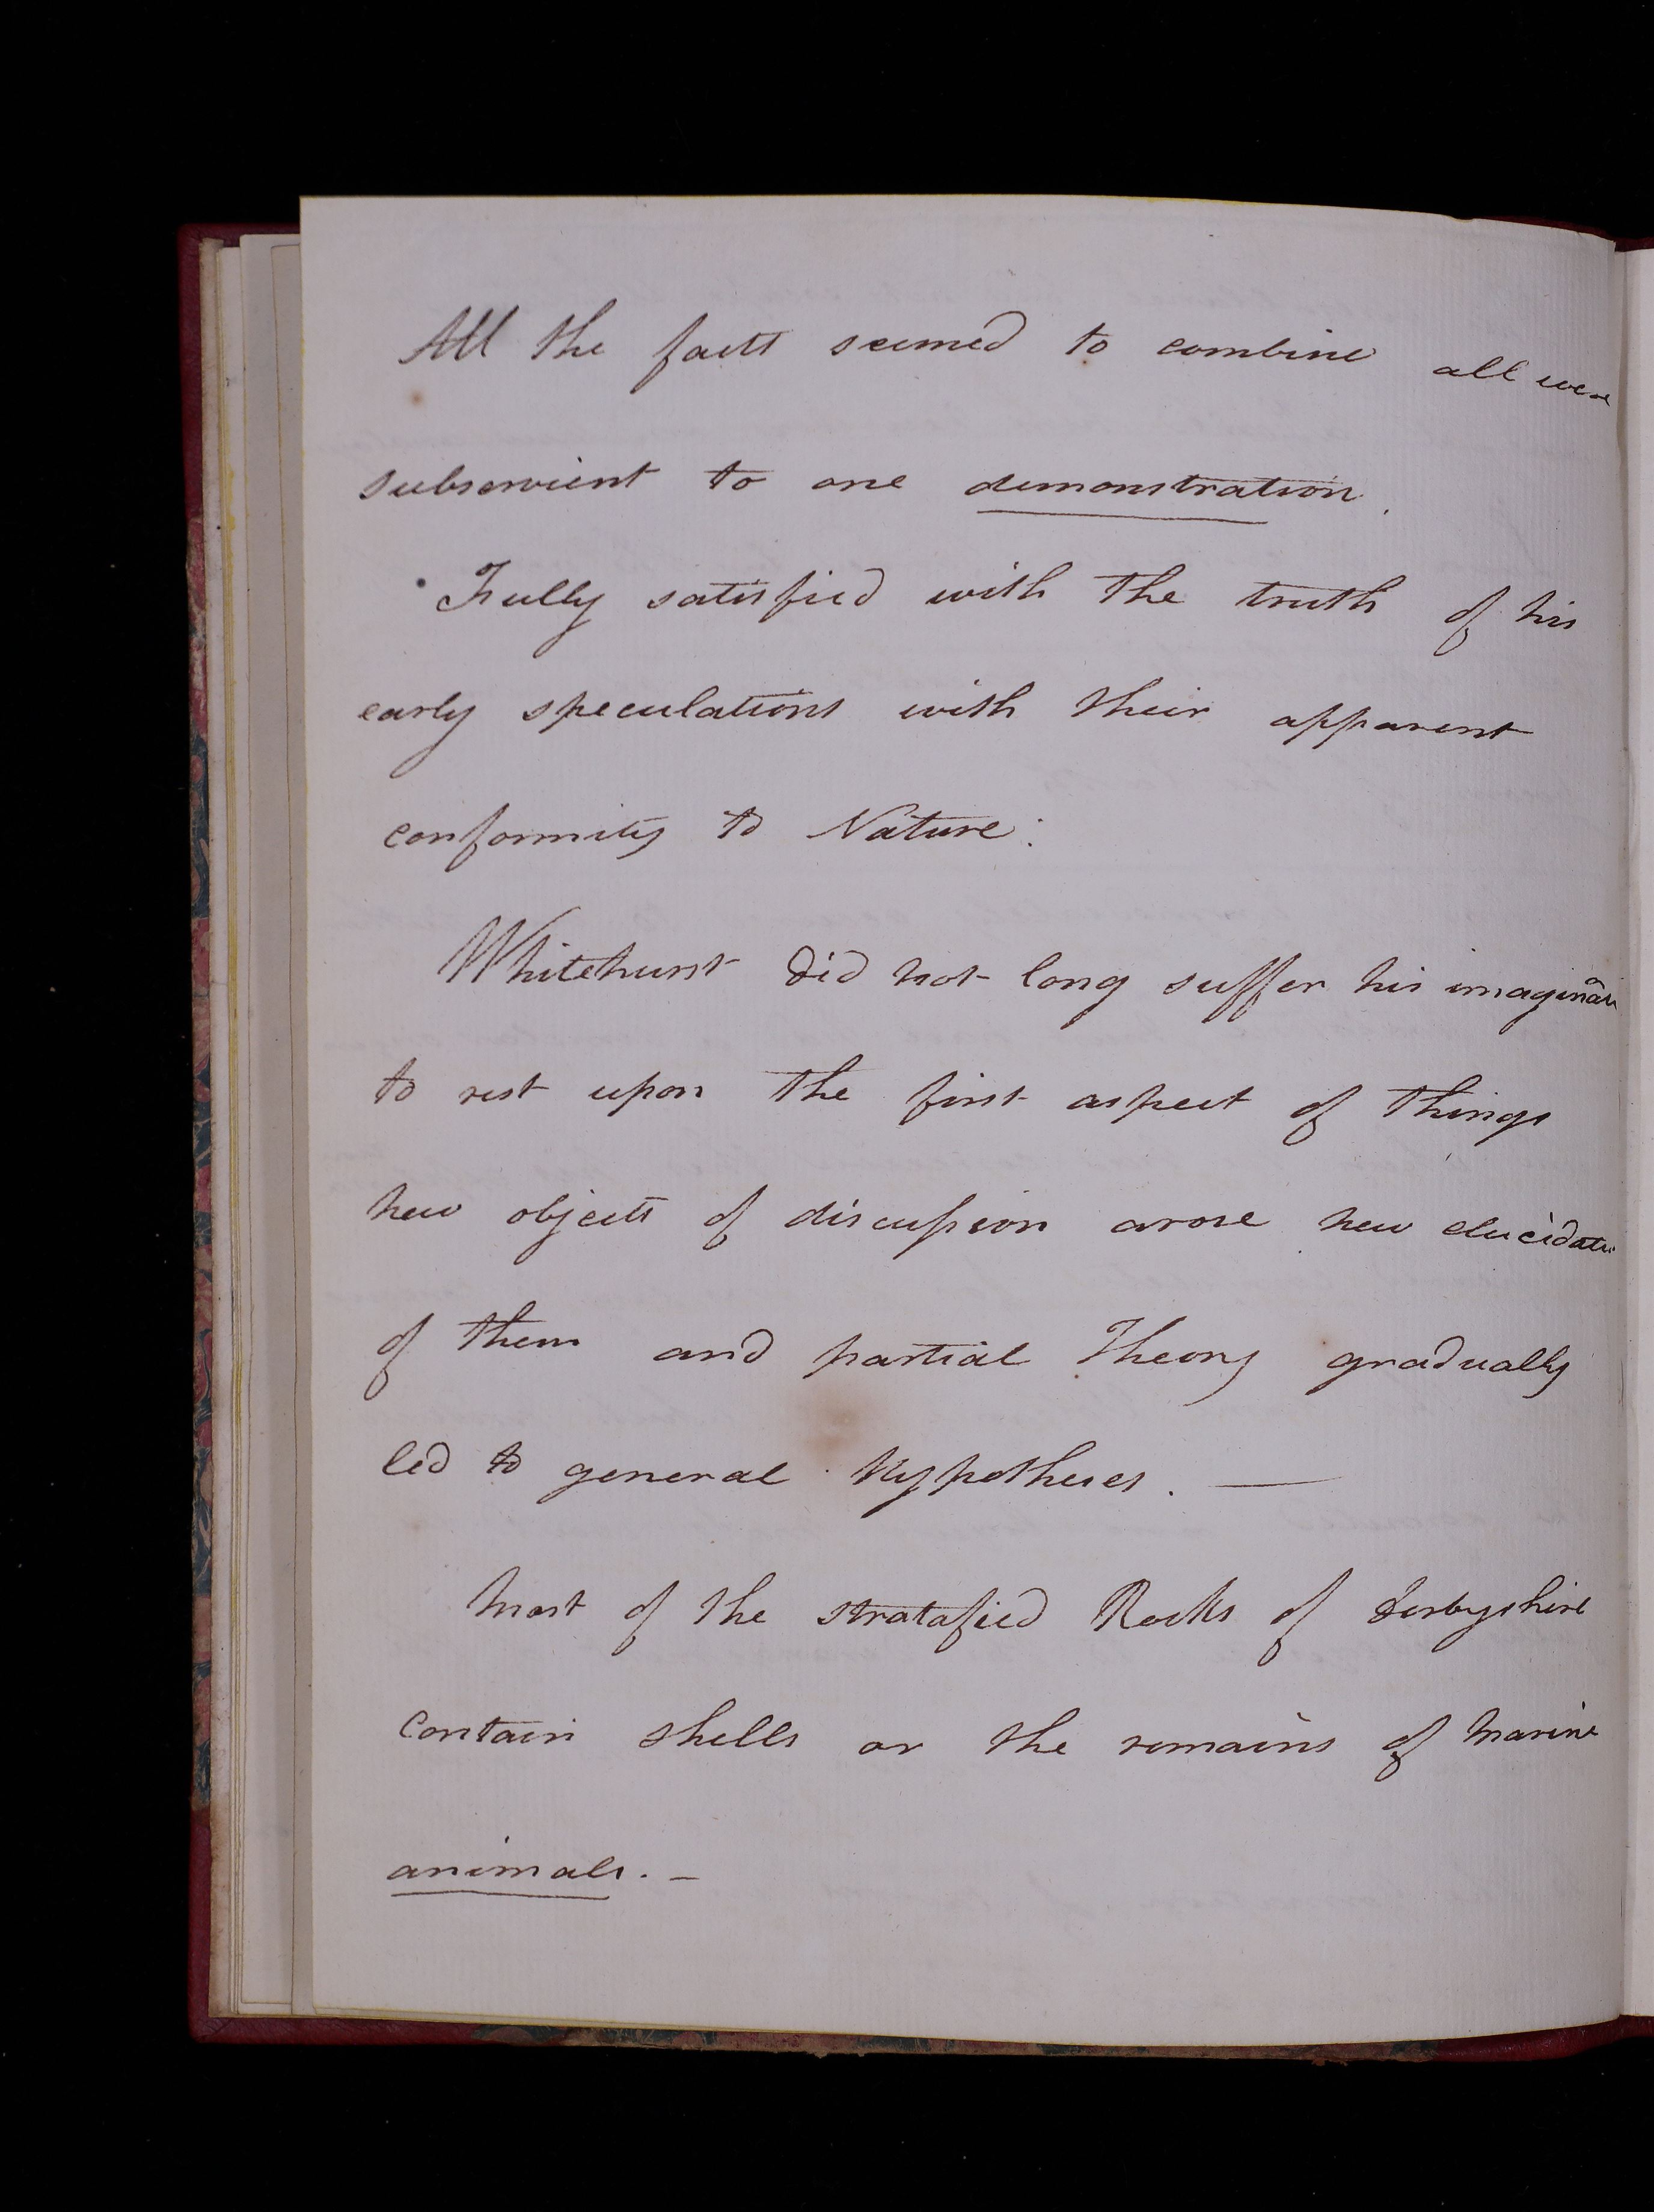 All the facts seemed to combine all were
subservient to one demonstration.
Fully satisfied with the truth of his
early speculations with their apparent
conformity to Nature:
Whitehurst did not long suffer his imaginān
to rest upon the first aspect of things
new objects of discussion arose new elucidatn
of them and partial Theory gradually
led to general Hypotheses. —
Most of the stratafied Rocks of Derbyshire
contain shells or the remains of Marine
animals. -